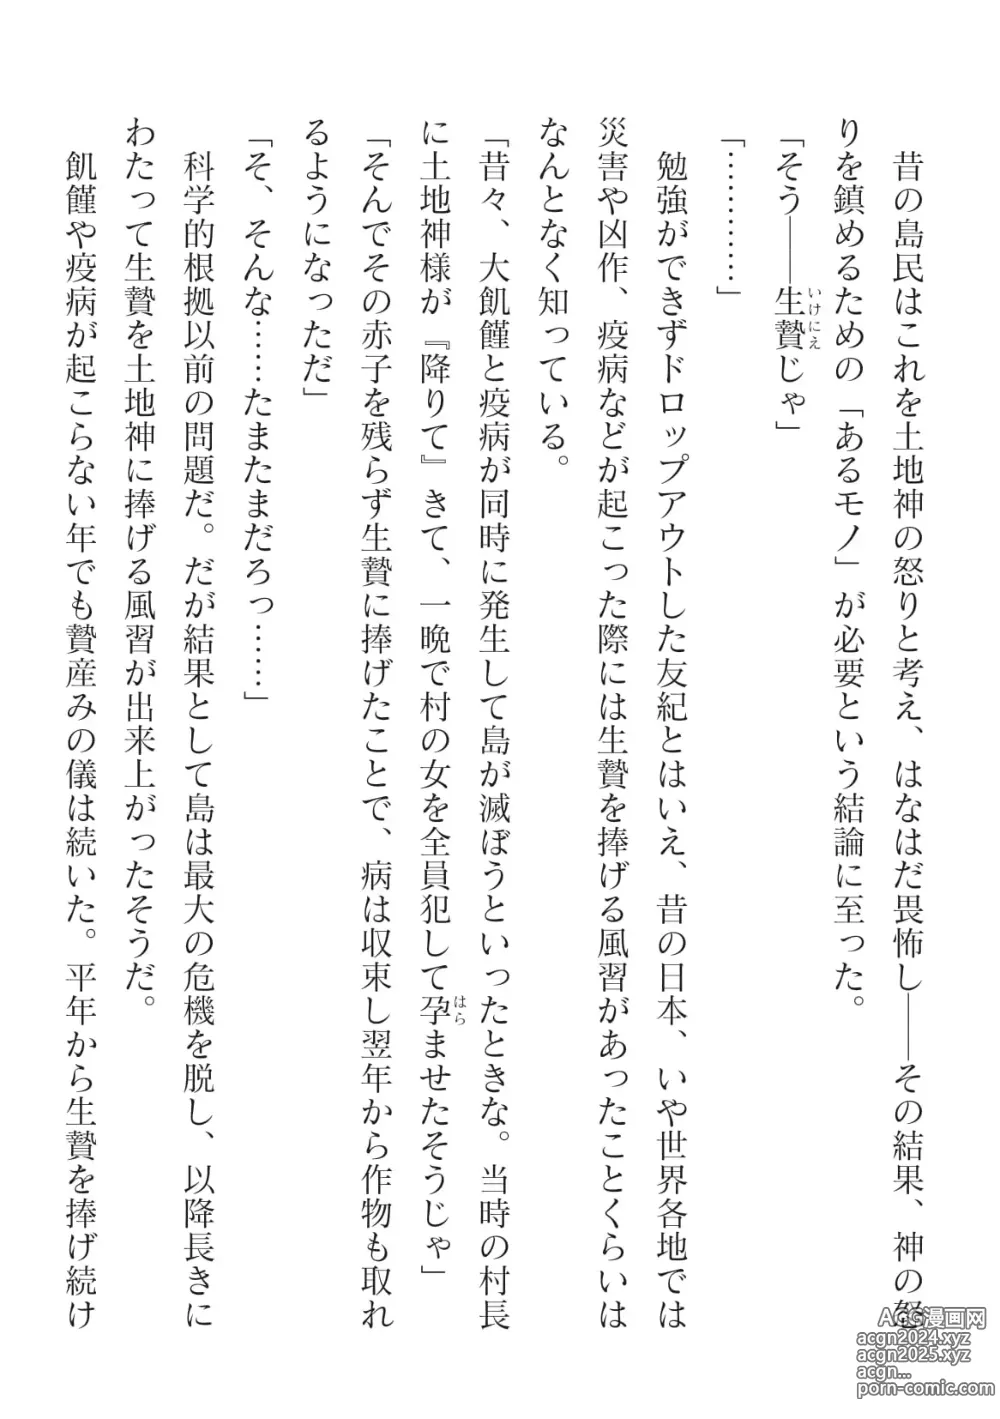 昔の島民はこれを土地神の怒りと考え、はなはだ畏怖し――その結果、神の怒
りを鎮めるための「あるモノ」が必要という結論に至った。
「そう――生贄じゃ」
いけにえ
「…………」
勉強ができずドロップアウトした友紀とはいえ、昔の日本、いや世界各地では
災害や凶作、疫病などが起こった際には生贄を捧げる風習があったことくらいは
なんとなく知っている。
「昔々、大飢饉と疫病が同時に発生して島が滅ぼうといったときな。当時の村長
に土地神様が『降りて』きて、一晩で村の女を全員犯して孕ませたそうじゃ」
はら
「そんでその赤子を残らず生贄に捧げたことで、病は収束し翌年から作物も取れ
るようになっただ」
「そ、そんな……たまたまだろっ……」
科学的根拠以前の問題だ。だが結果として島は最大の危機を脱し、以降長きに
わたって生贄を土地神に捧げる風習が出来上がったそうだ。
飢饉や疫病が起こらない年でも贄産みの儀は続いた。平年から生贄を捧げ続け
ACG漫画网
acgn2024.xyz
acgn2025.xyz
acgn...
porn-comic.com